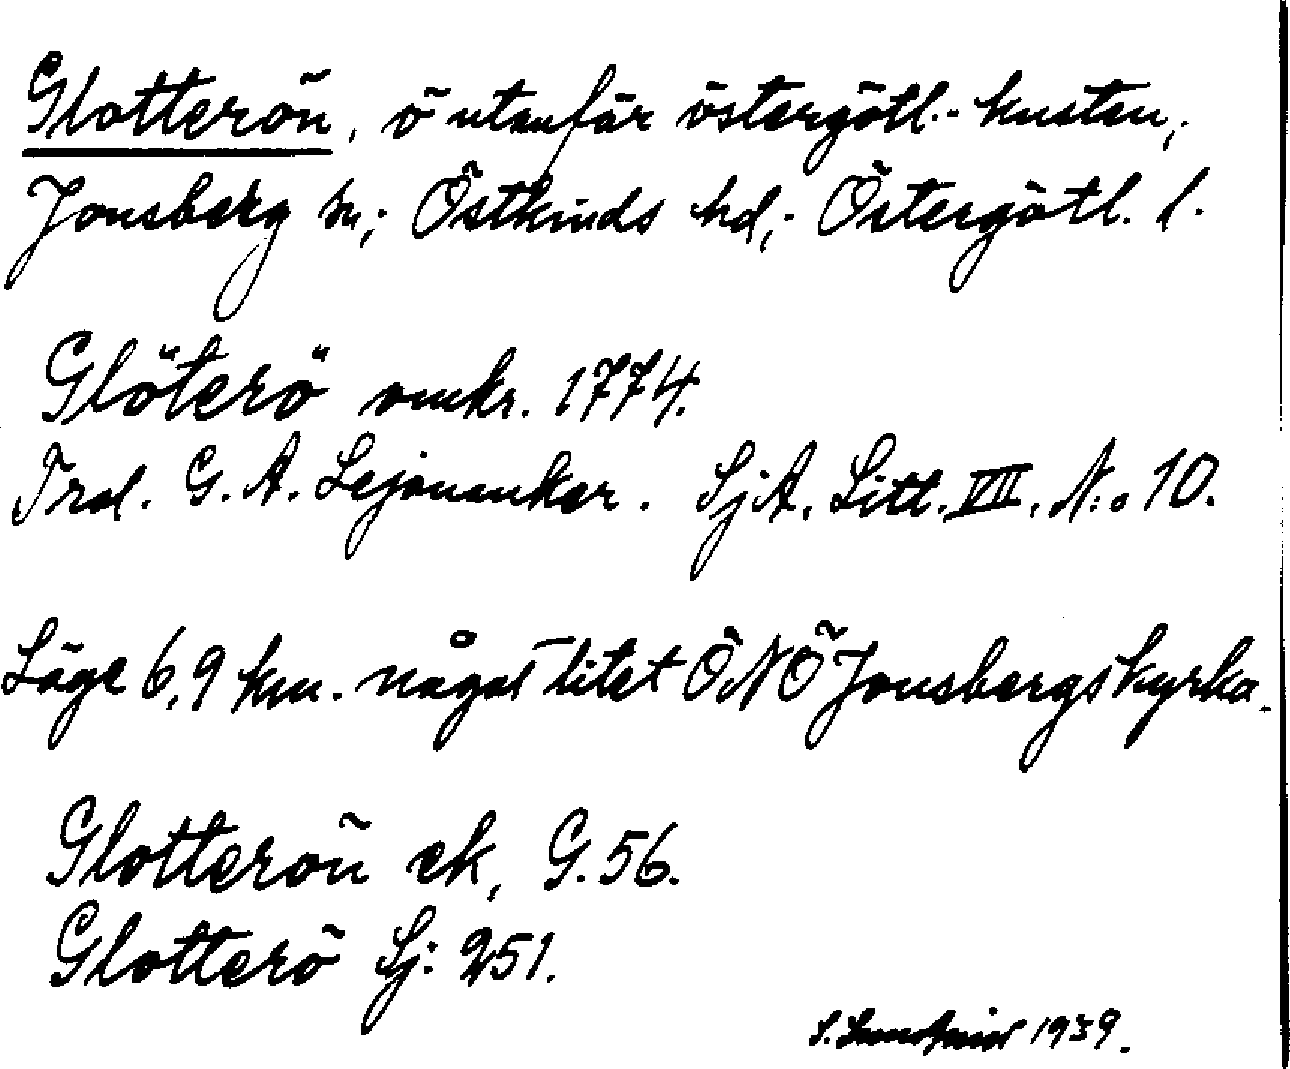 Glotterön, ö utanför östergötl.-kusten,
Jonsberg sn; Östkinds hd; Östergötl. l.
Glöterö omkr. 1774.
Trol. G. A. Lejonankar. SjA. Litt. VIII. N:o 10.
Läge 6,9 km. något litet ÖNÖ Jonsbergs kyrka.
Glotterön ek, G. 56.
Glotterö Sj: 251.
S. 1939.